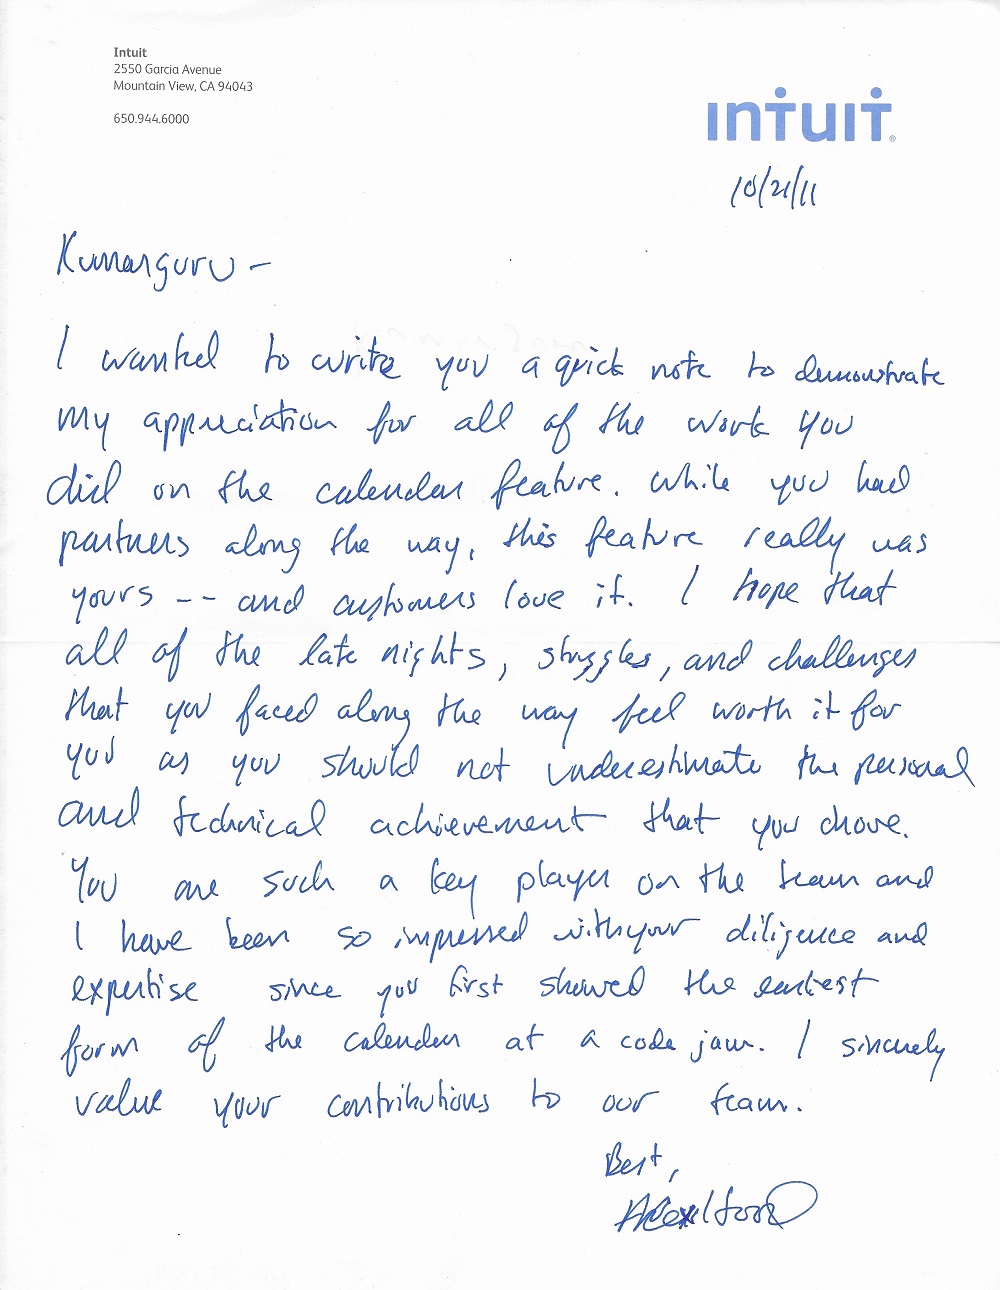 Intuit
2550 Garcia Avenue
Mountain View, CA 94043
650.944.6000
intuit®
10/21/11
Kumarguru -
I wanted to write you a quick note to demonstrate
my appreciation for all of the work you
did on the calendar feature. While you had
partners along the way, this feature really was
yours -- and customers love it. I hope that
all of the late nights, struggles, and challenges
that you faced along the way feel worth it for
you as you should not underestimate the personal
and technical achievement that you drove.
You are such a key player on the team and
I have been so impressed with your diligence and
expertise since you first showed the earliest
form of the calendar at a code jam. I sincerely
value your contributions to our team.
Best,